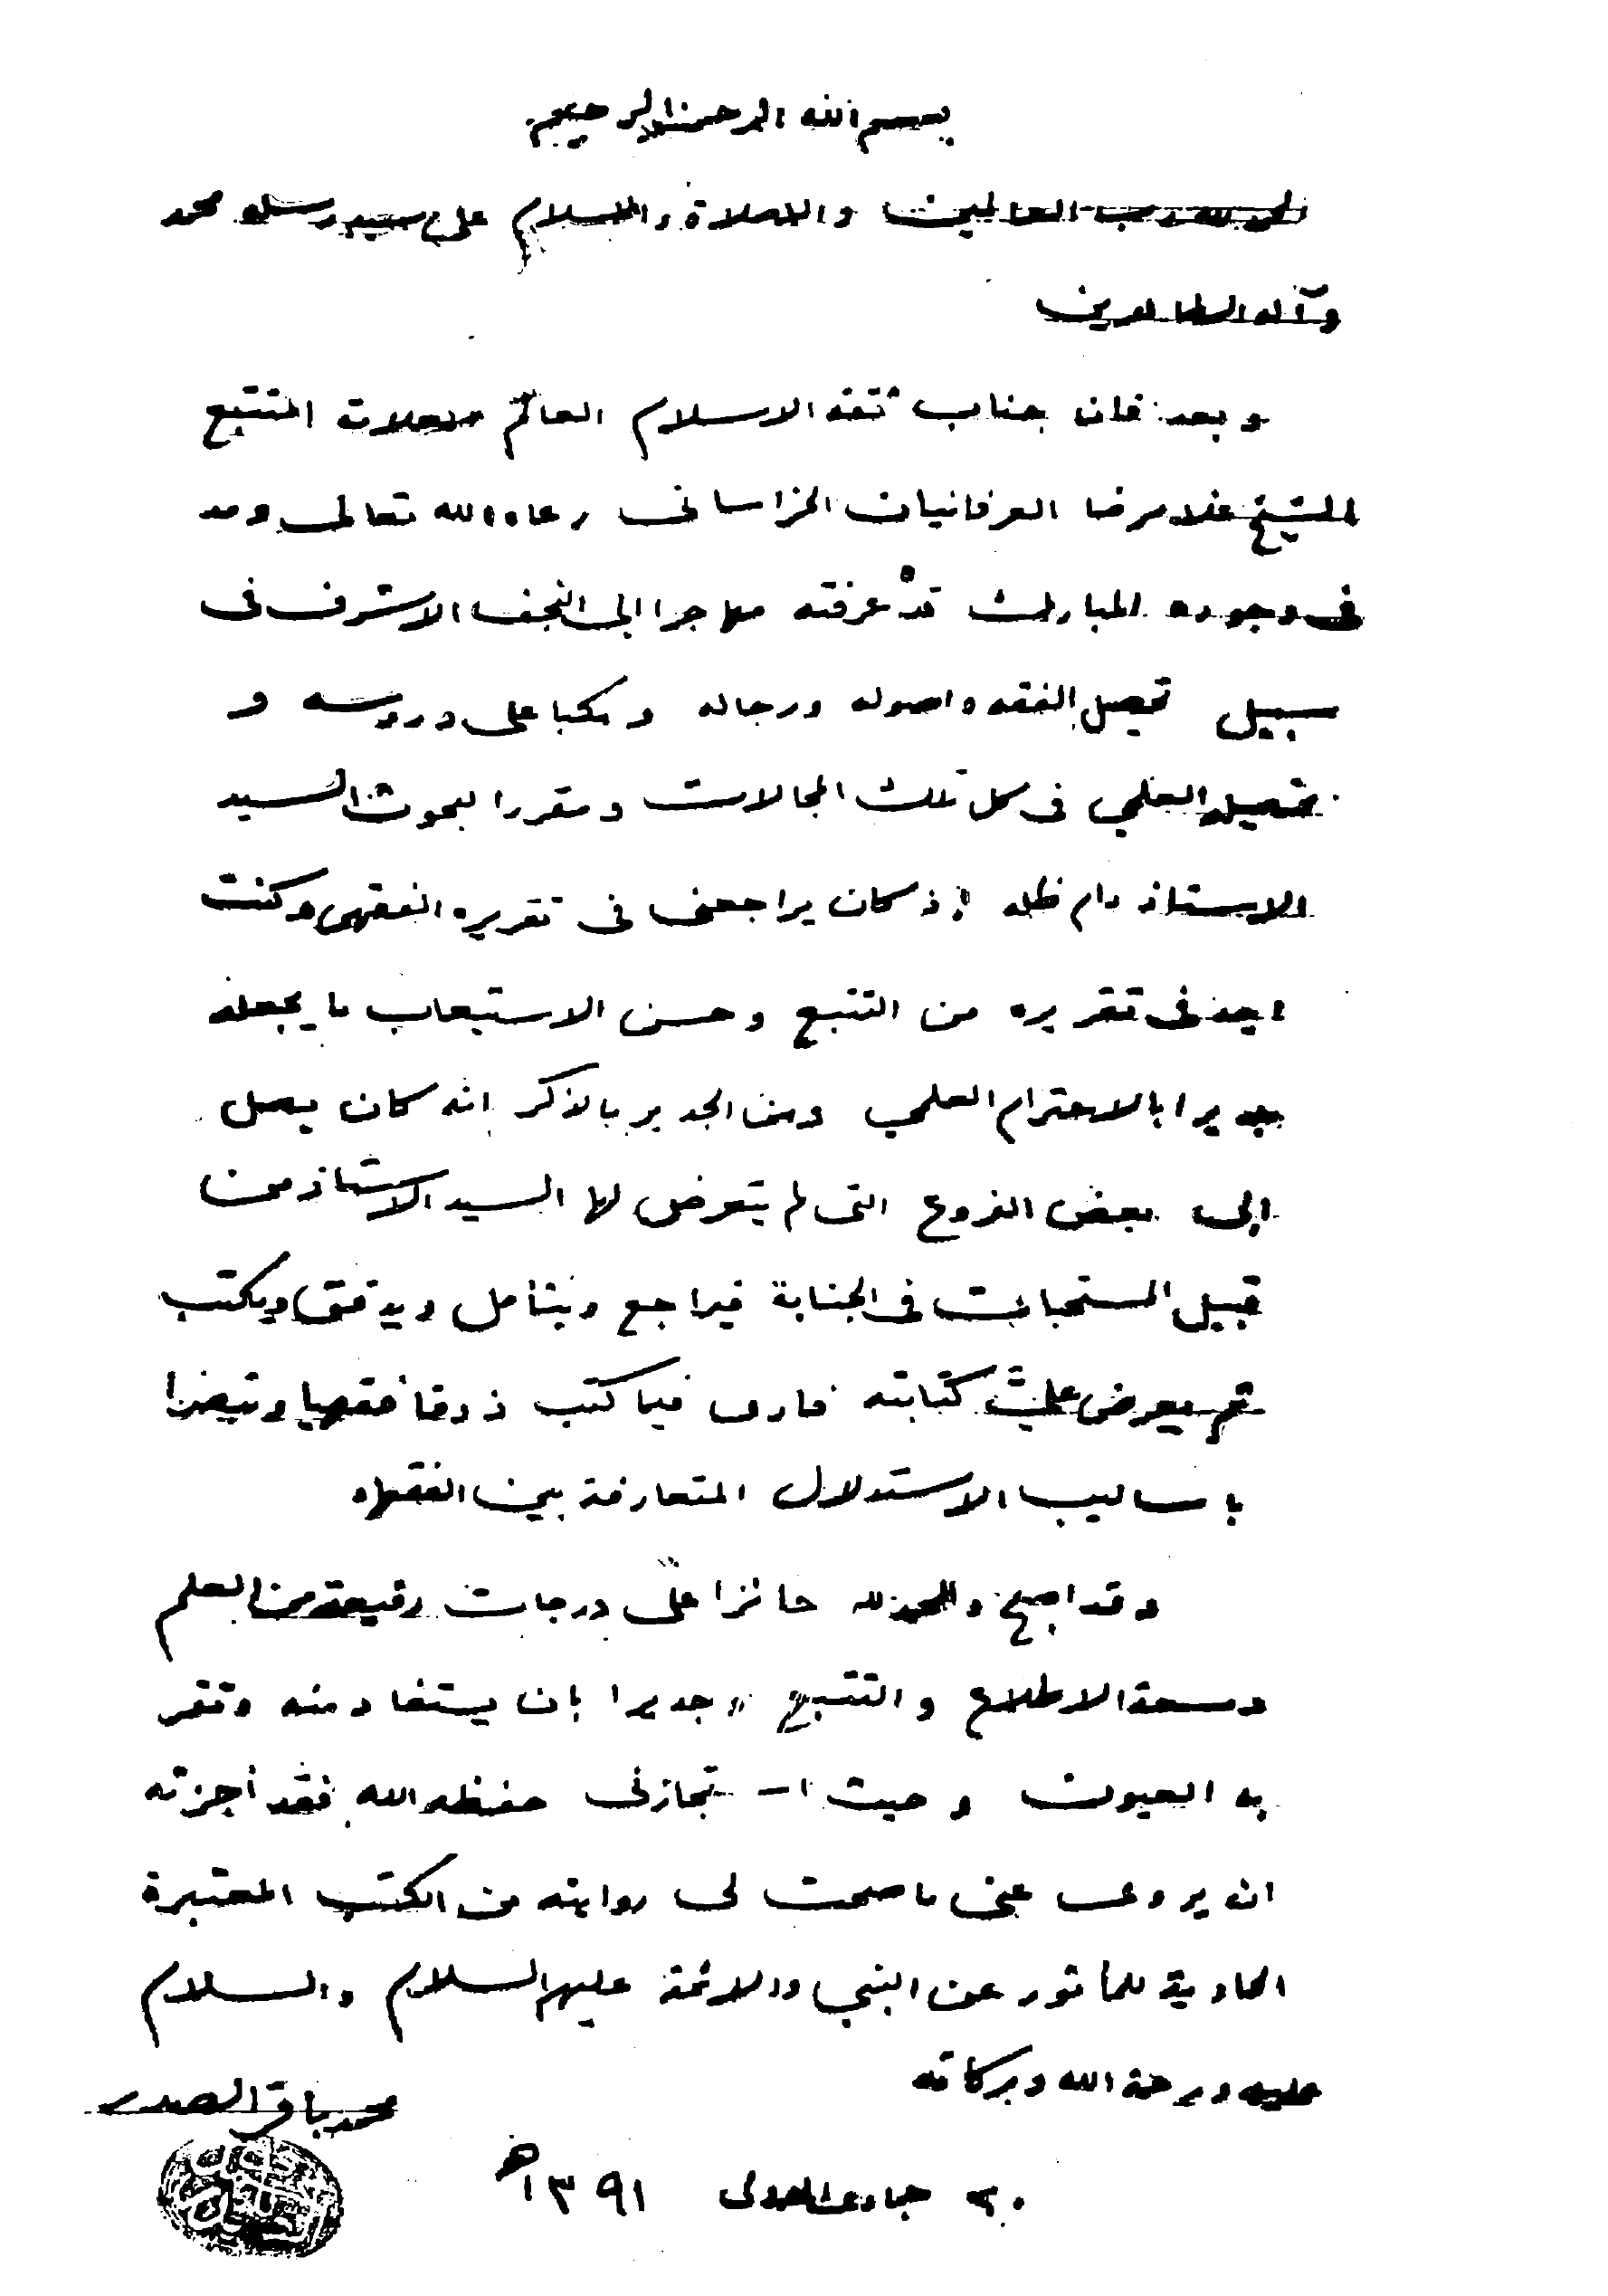 بسم الله الرحمن الرحيم
الحمد لله رب العالمين والصلاة والسلام على سيد رسله محمد
وآله الطاهرين
وبعد فان جناب ثقة الاسلام العالم العلامة المتتبع
الشيخ غلام رضا العرفانيان الخراساني رعاه الله تعالى ومد
في وجوده المبارك قد عرفته مهاجرا إلى النجف الاشرف في
سبيل تحصيل الفقه واصوله ورجاله ومكبا على دروسه و
تحصيله العلمي في كل تلك المجالات ومقررا لبحوث السيد
الاستاذ دام ظله إذ كان يراجعني في تقريره الفقهي وكنت
اجد في تقريره من التتبع وحسن الاستيعاب ما يجعله
جديرا بالاحترام العلمي ومن الجدير بالذكر انه كان يصل
إلى بعض الفروع التي لم يتعرض لها السيد الاستاذ من
قبيل المستحبات في الجنابة فيراجع ويتأمل ويدقق ويكتب
ثم يعرض علي كتابته فارى فيما كتب ذوقا فقهيا وتبصرا
باساليب الاستدلال المتعارفة بين الفقهاء
وقد اصبح والحمد لله حائزا على درجات رفيعة من العلم
وسعة الاطلاع والتتبع جديرا بان يستفاد منه وتقر
به العيون وحيث استجازني حفظه الله فقد أجزته
ان يروي عني ما صحت لي روايته من الكتب المعتبرة
الحاوية للمأثور عن النبي والائمة عليهم السلام والسلام
عليه ورحمة الله وبركاته
محمد باقر الصدر
٢٠ جمادى الاولى ١٣٩١ هـ